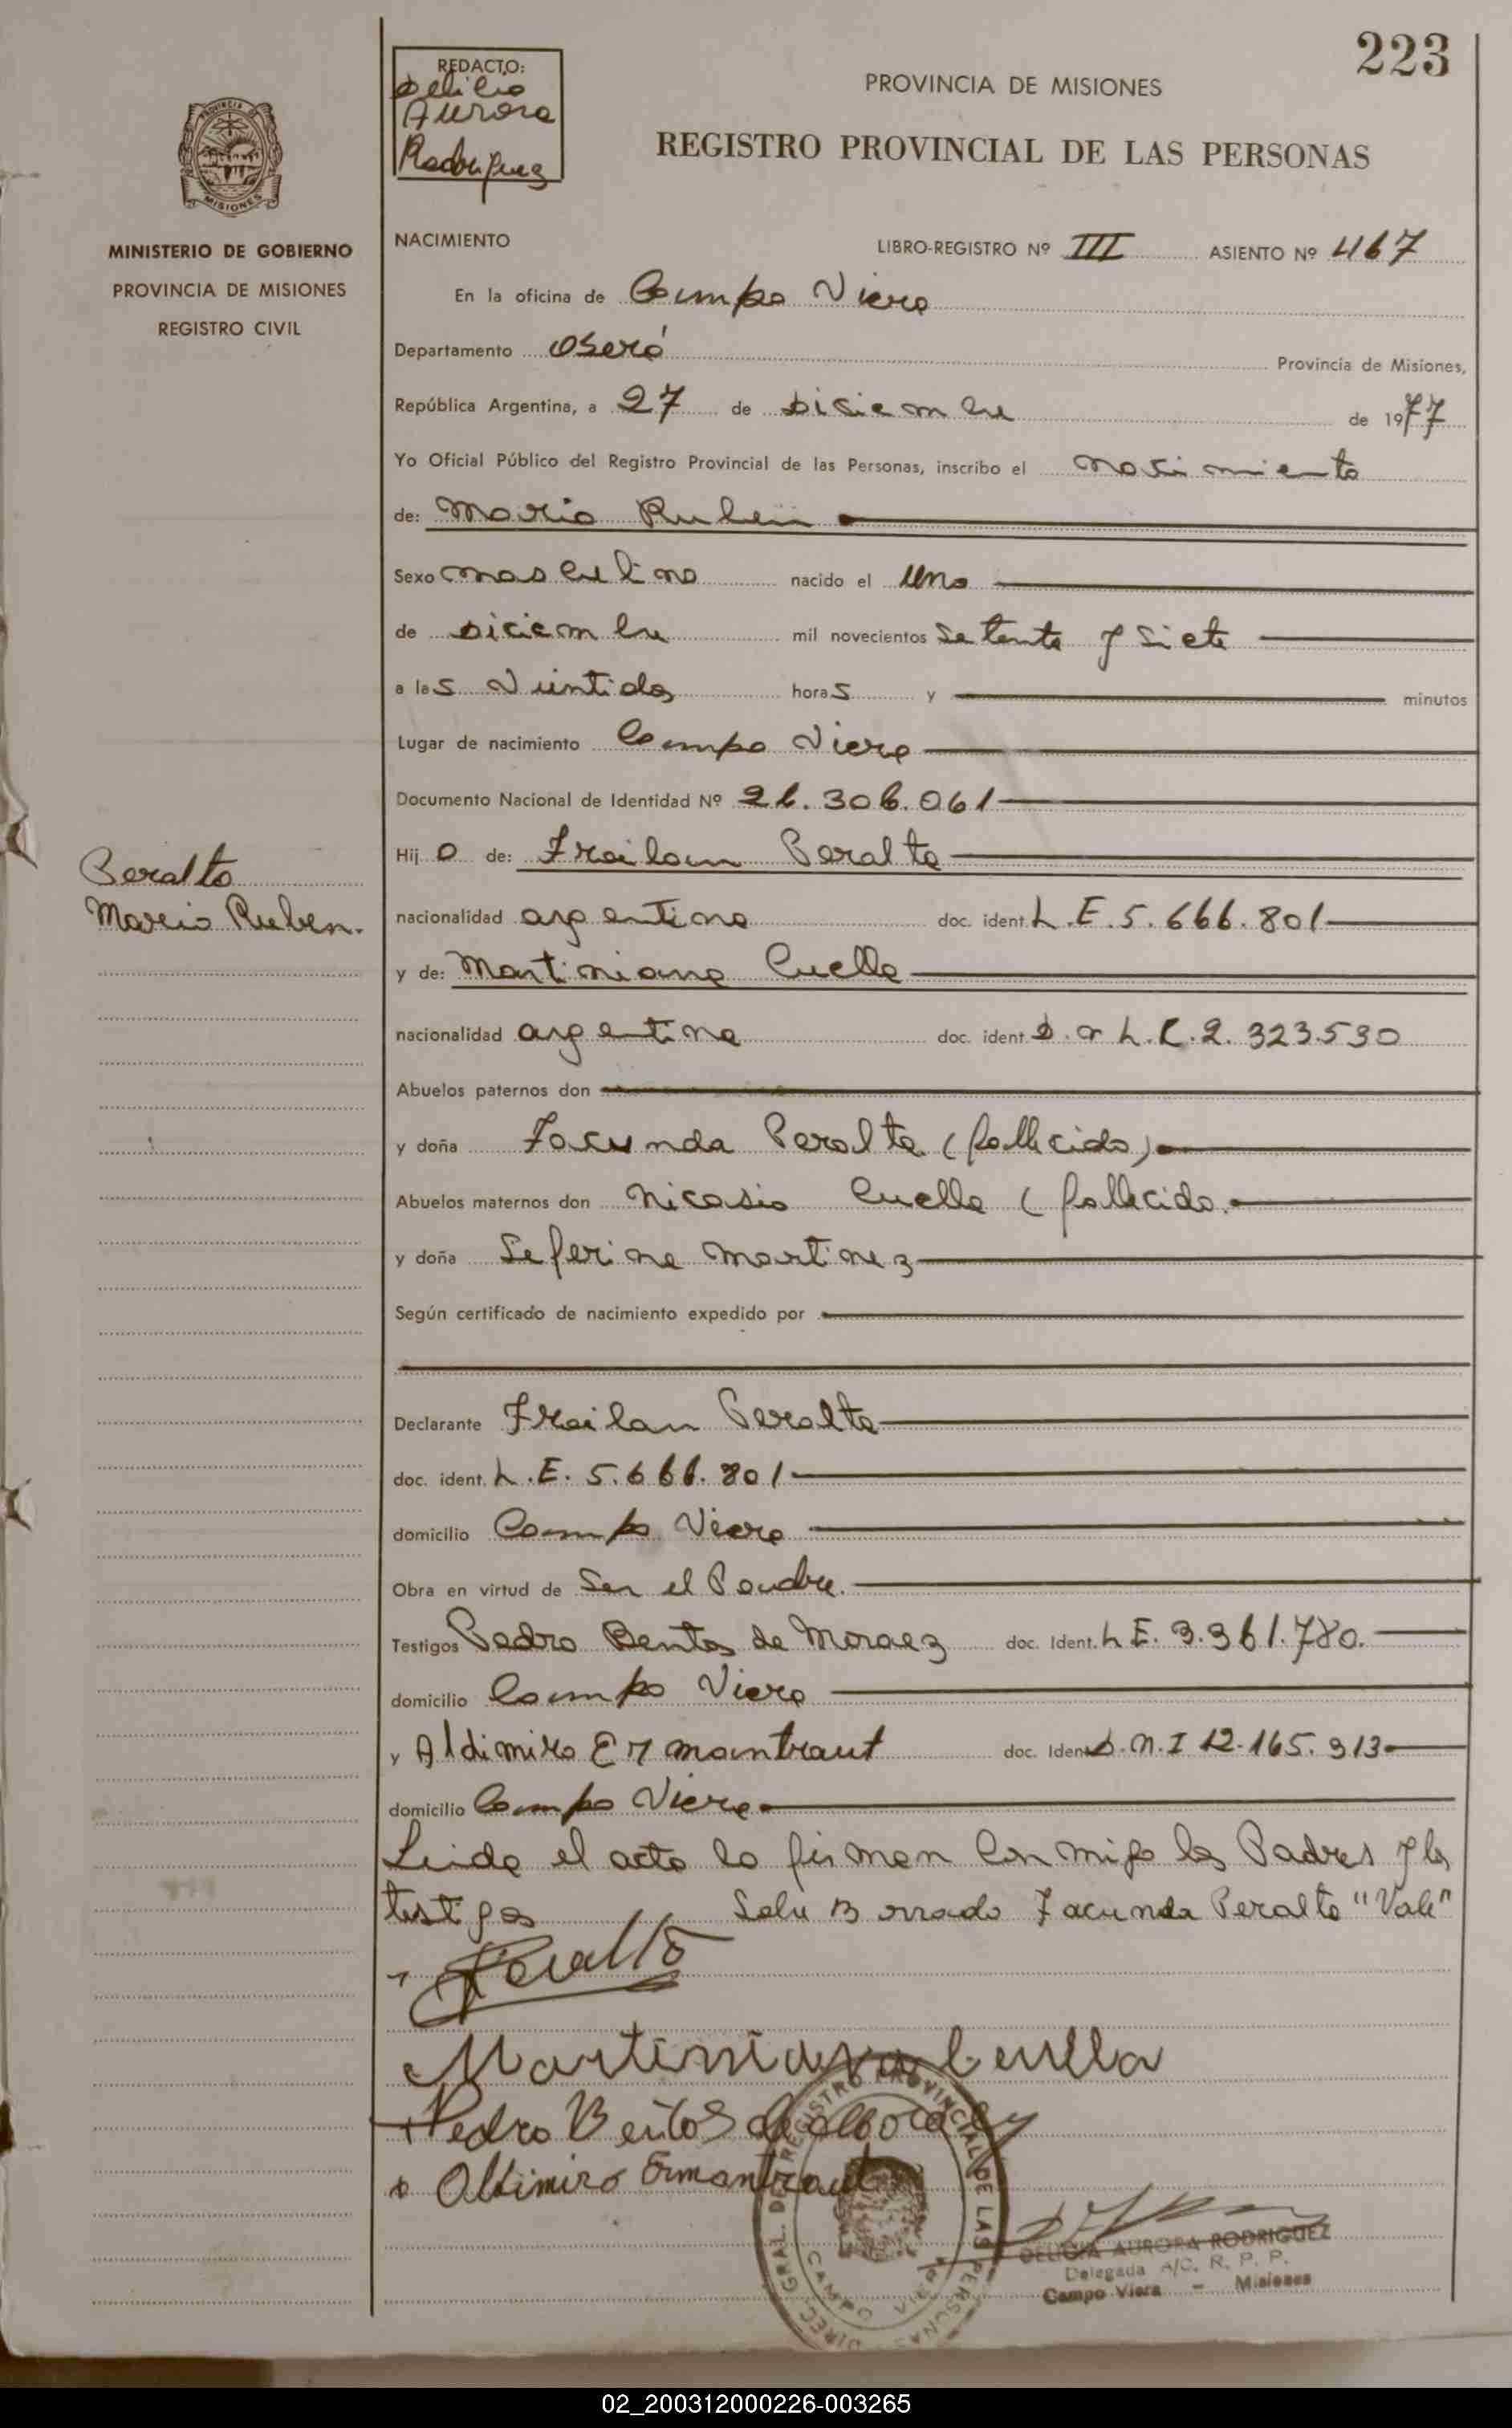 223
REDACTO:
Delicia
Aurora
Rodriguez
PROVINCIA DE MISIONES
REGISTRO PROVINCIAL DE LAS PERSONAS
PROVINCIA
MISIONES
MINISTERIO DE GOBIERNO
PROVINCIA DE MISIONES
REGISTRO CIVIL
NACIMIENTO
LIBRO-REGISTRO Nº III ASIENTO Nº 467
En la oficina de Campo Viera
Departamento Oberá Provincia de Misiones,
República Argentina, a 27 de Diciembre de 1977
Yo Oficial Público del Registro Provincial de las Personas, inscribo el nacimiento
de: Mario Ruben
Sexo masculino nacido el uno
de Diciembre mil novecientos setenta y siete
a las Veintidos horas y minutos
Lugar de nacimiento Campo Viera
Documento Nacional de Identidad Nº 26.306.061
Hijo de: Froilan Peralta
Peralta
Mario Ruben.
nacionalidad argentina doc. ident. L.E. 5.666.801
y de: Martiniana Cuella
nacionalidad argentina doc. ident. L.C. 2.323.530
Abuelos paternos don
y doña Facunda Peralta (fallecida)
Abuelos maternos don Nicasio Cuella (fallecido.
y doña Seferina Martinez
Según certificado de nacimiento expedido por
Declarante Froilan Peralta
doc. ident. L.E. 5.666.801
domicilio Campo Viera
Obra en virtud de Ser el Padre.
Testigos Pedro Bentos de Moraez doc. Ident. L.E. 3.361.780.
domicilio Campo Viera
y Aldimiro Ermantraut doc. Ident. D.N.I 12.165.313
domicilio Campo Viera
Leida el acta la firman conmigo los Padres y los
testigos Sobre Borrado Facunda Peralta "Vale"
Peralta
Martiniana Cuella
Pedro Bentos de
Aldimiro Ermantraut
DIREC. GRAL. DEL REGISTRO PROVINCIAL DE LAS PERSONAS
CAMPO VIERA
DELICIA AURORA RODRIGUEZ
Delegada A/C. R. P. P.
Campo Viera - Misiones
02_200312000226-003265